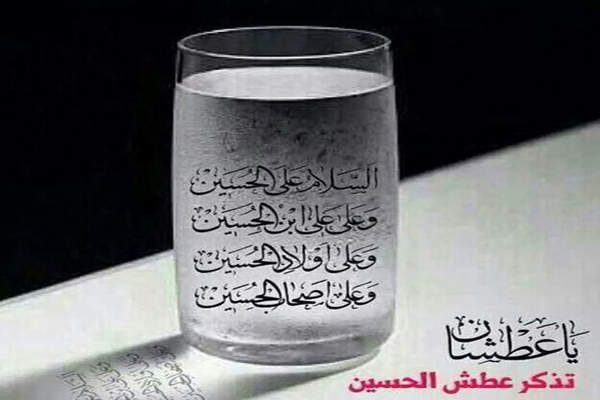 السَّلامُ عَلَى الحُسَيْن
وَعَلى عَلِيِّ ابْنِ الحُسَيْن
وَعَلى أَوْلادِ الحُسَيْن
وَعَلى أَصْحَابِ الحُسَيْن
يا عَطشَان
تذكر عطش الحسين